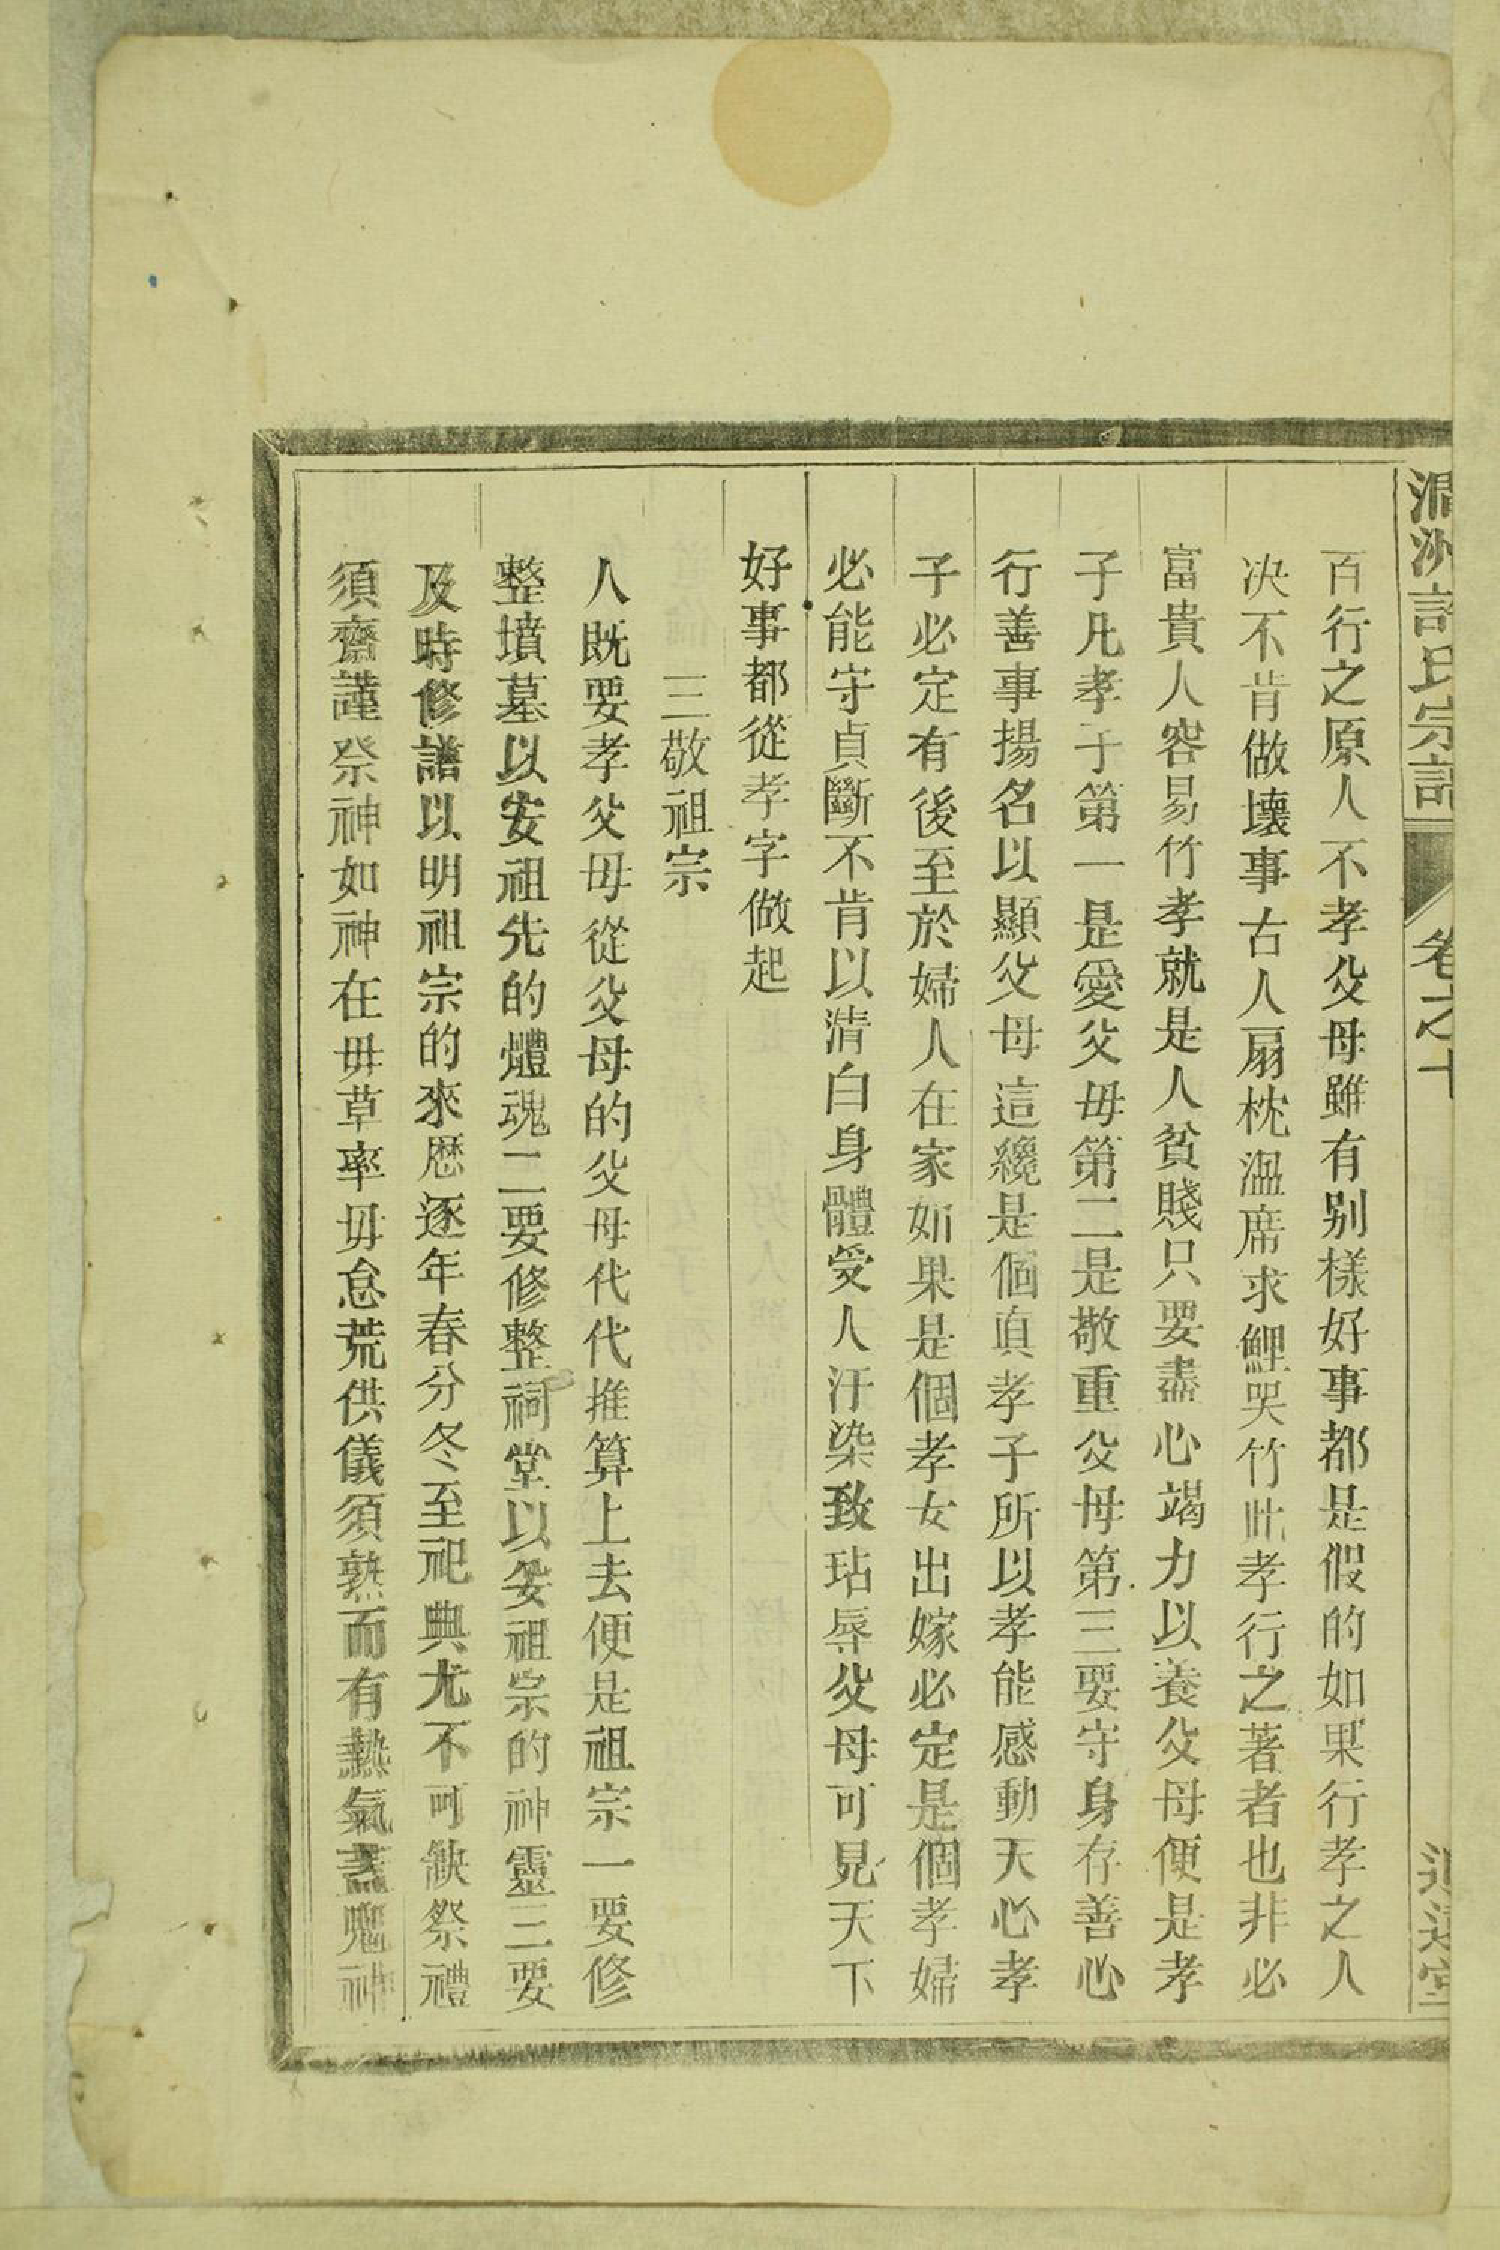 洲許氏宗譜
卷之十
百行之原人不孝父母雖有别樣好事都是假的如果行孝之人
決不肯做壞事古人扇枕溫席求鯉哭竹此孝行之著者也非必
富貴人容易行孝就是人貧賤只要盡心竭力以養父母便是孝
子凡孝子第一是愛父母第二是敬重父母第三要守身存善心
行善事揚名以顯父母這纔是個真孝子所以孝能感動天心孝
子必定有後至於婦人在家如果是個孝女出嫁必定是個孝婦
必能守貞斷不肯以清白身體受人汙染致玷辱父母可見天下
好事都從孝字做起
三敬祖宗
人既要孝父母從父母的父母代代推算上去便是祖宗一要修
整墳墓以安祖先的體魂二要修整祠堂以妥祖宗的神靈三要
及時修譜以明祖宗的來歷逐年春分冬至祀典尤不可缺祭禮
須齋謹祭神如神在毋草率毋怠荒供儀須熟而有熱氣蓋鬼神